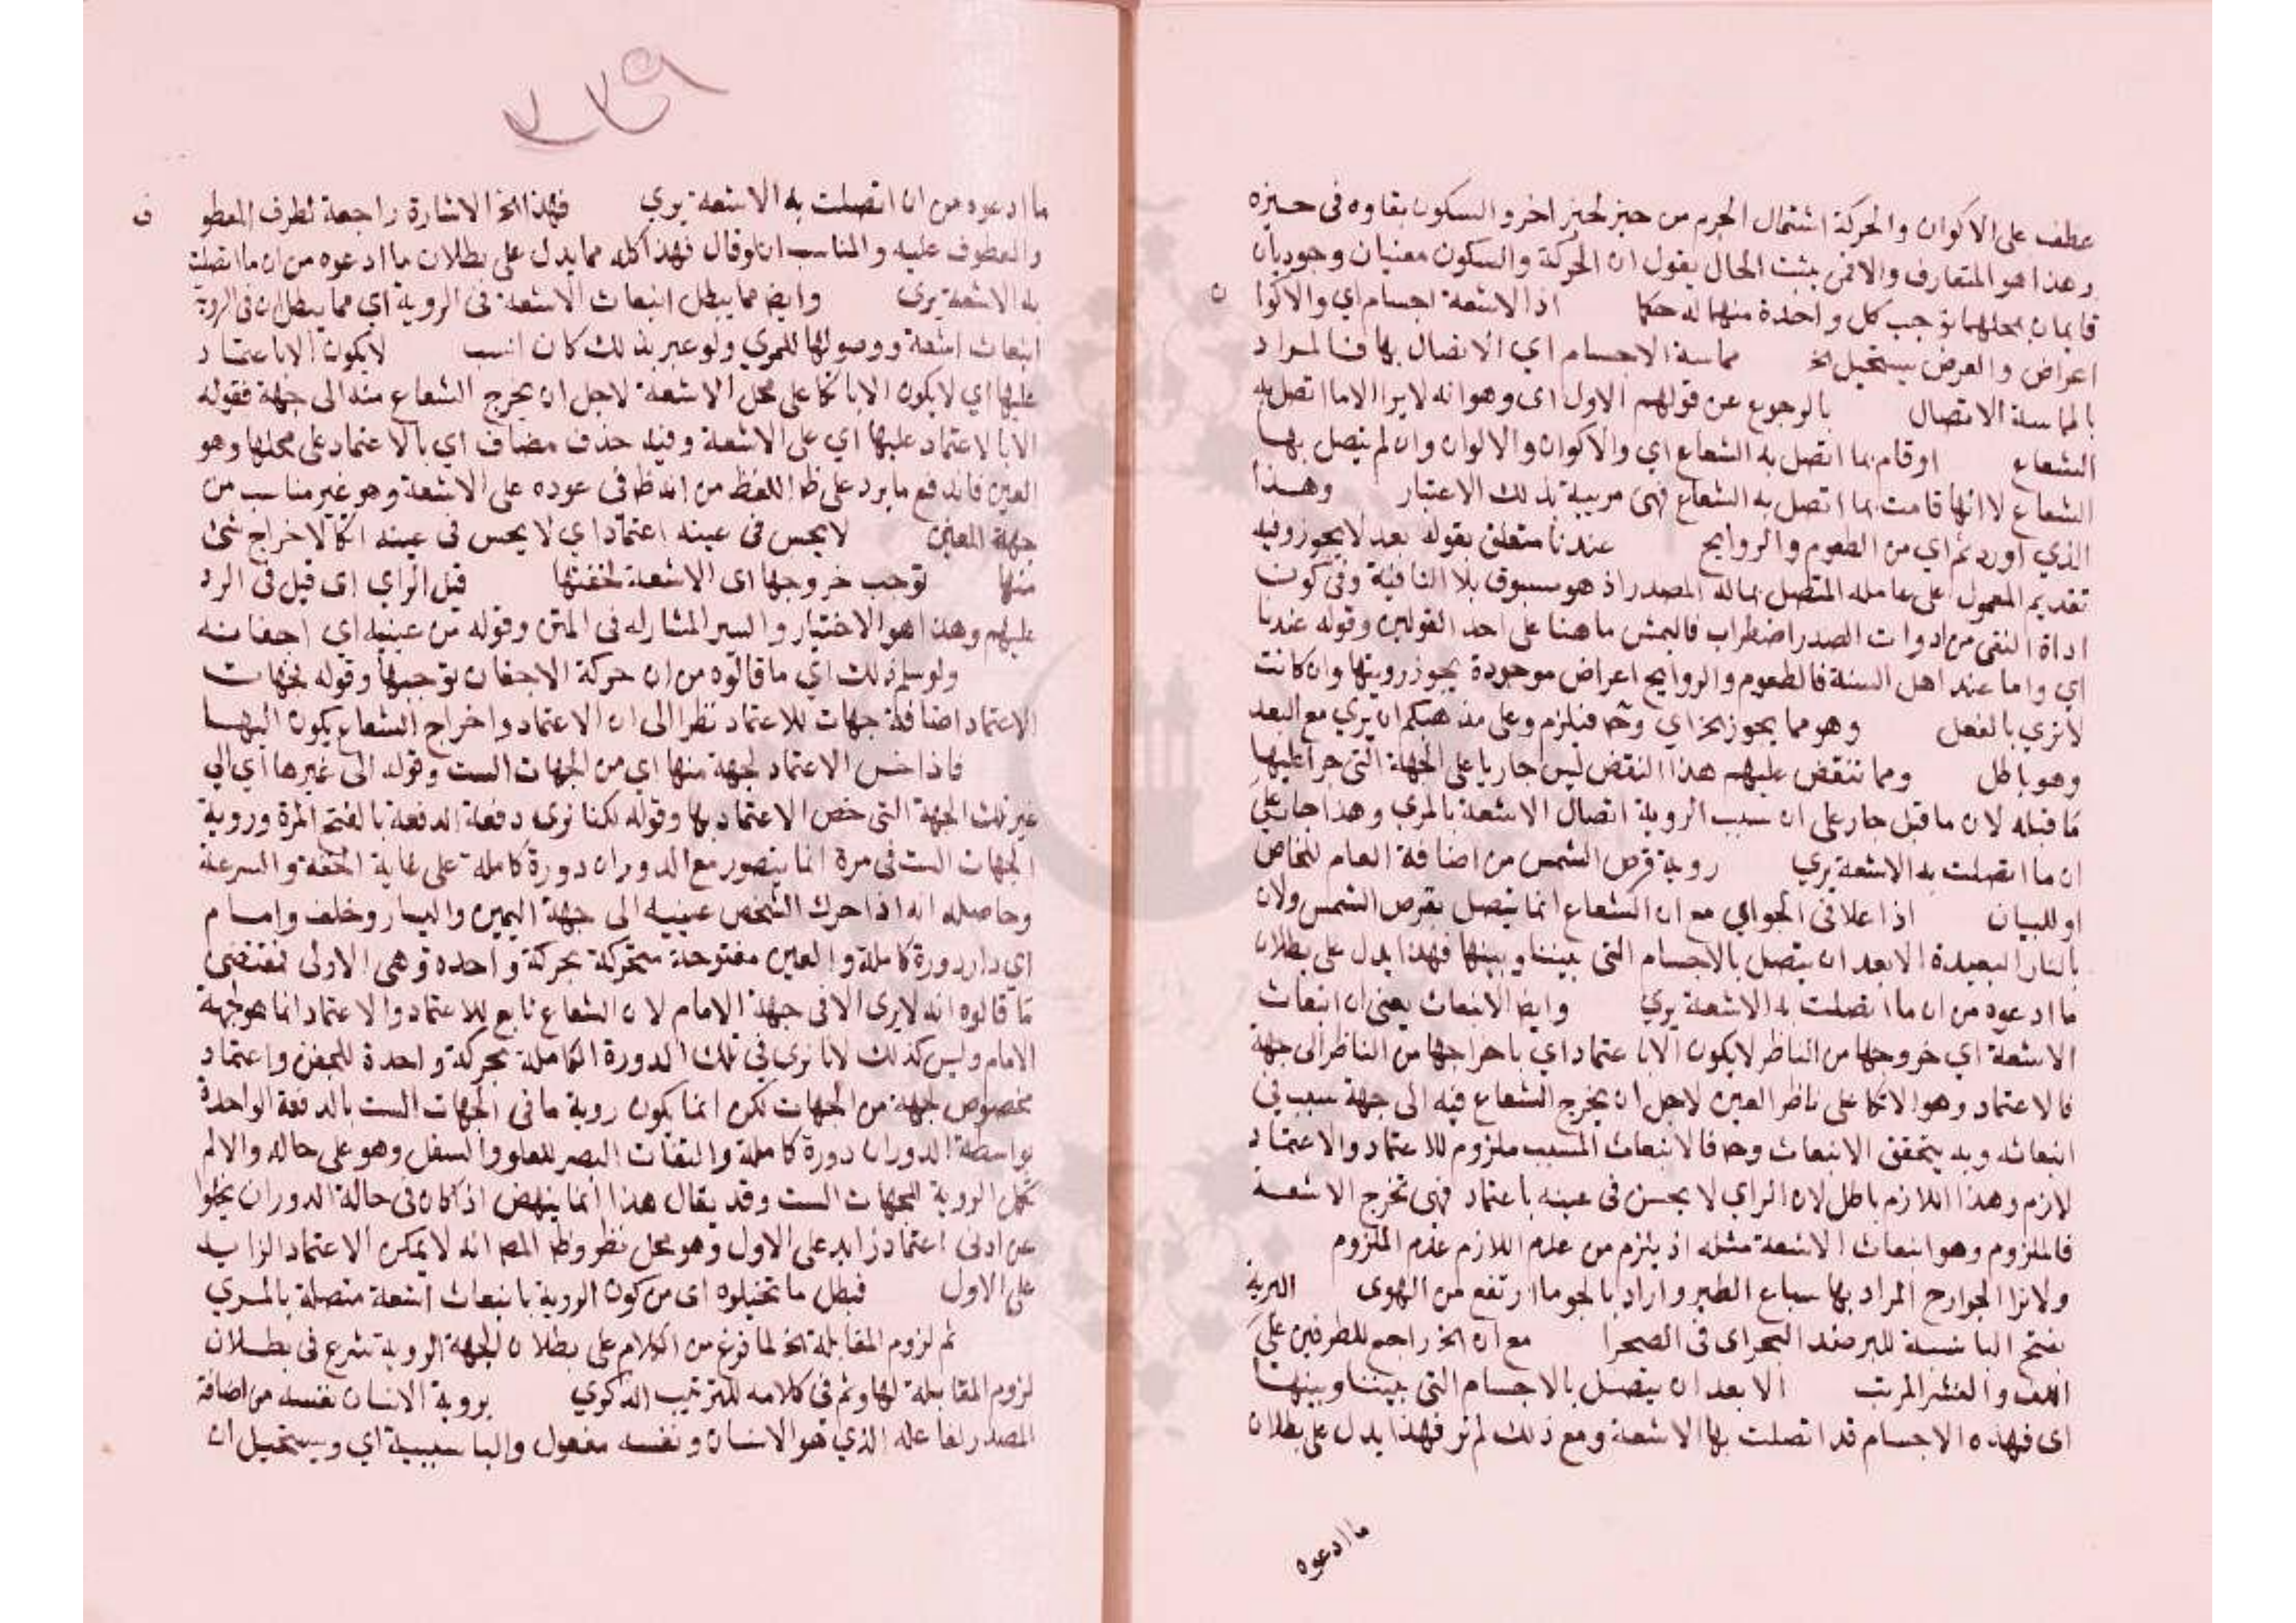 عطف على الاكوان والحركة اشتمال الجرم من حيز لحيز اخر والسكون بقاوه فى حيزه
وهذا هو المتعارف والا فمن يثبت الحال يقول ان الحركة والسكون معنيان وجوديان
قايمان بمحلهما توجب كل واحدة منهما له حكما اذ الاشعة اجسام اي والاكوا ن
اعراض والعرض يستحيل الخ مماسة الاجسام اي الاتصال بها فالمراد
بالمماسة الاتصال بالرجوع عن قولهم الاول اى وهو انه لا يرا الا ما اتصل به
الشعاع او قام بما اتصل به الشعاع اي والاكوان والالوان وان لم يتصل بها
الشعاع لاانها قامت بما اتصل به الشعاع فهى مرييه بذلك الاعتبار وهذا
الذي اورد تم اي من الطعوم والروايح عندنا متعلق بقوله بعد لا يجوز وفيه
تقديم المعمول على عامله المتصل بماله المصدر اذ هو مسبوق بلا النافية وفى كون
اداة النفى من ادوات الصدر اضطراب فاليمش ما هنا على احد القولين وقوله عندنا
اي واما عند اهل السنة فالطعوم والروايح اعراض موجودة يجوز رويتها وان كانت
لا نري بالفعل وهو مما يجوز الخ اي وح فيلزم وعلى مذهبكم ان يري مع البعد
وهو باطل ومما ننقض عليهم هذا النقض ليس جاريا على الجهة التى جرا عليها
ما قبله لان ما قبل جار على ان سبب الروية اتصال الاشعة بالمري وهذا جار على
ان ما اتصلت به الاشعة يري روية قرص الشمس من اضافة العام للخاص
او للبيان اذا علا فى الجو اي مع ان الشعاع انما يتصل بقرص الشمس ولان
بالنار البعيدة الا بعد ان يتصل بالاجسام التى بيننا وبينها فهذا يدل على بطلان
ما ادعوه من ان ما اتصلت به الاشعة يري وايضا الانبعاث يعنى ان انبعاث
الاشعة اي خروجها من الناظر لا يكون الا باعتماد اي باخراجها من الناظر الى جهة
فالاعتماد وهو الاتكا على ناظر العين لاجل ان يخرج الشعاع فيه الى جهة سبب في
انبعاثه وبه يتحقق الانبعاث وح فالانبعاث المسبب ملزوم للاعتماد والاعتماد
لازم وهذا اللازم باطل لان الراي لا يحسن فى عينه باعتماد فهى تخرج الاشعة
فالملزوم وهو انبعاث الاشعة مثله اذ يلزم من عدم اللازم عدم الملزوم
ولانرا الجوارح المراد بها سباع الطير واراد بالجو ما ارتفع من الهوى البرية
بفتح الباء نسبة للبر ضد البحر اى فى الصحرا مع ان الخ راجع للطرفين على
اللف والنشر المرتب الا بعد ان يتصل بالاجسام التى بيننا وبينها
اى فهذه الاجسام قد اتصلت بها الاشعة ومع ذلك لم تر فهذا يدل على بطلان
ما ادعوه
٣٣٩
ما ادعوه من ان اتصلت به الاشعة يري فهذا الخ الاشارة راجعة لطرف المعطو ف
والمعطوف عليه والمناسب ان لو قال فهذا كله مما يدل على بطلان ما ادعوه من ان ما اتصلت
به الاشعة يرى وايضا مما يبطل انبعاث الاشعة فى الروية اي مما يبطل ان فى الروية
انبعاث اشعة ووصولها للمري ولو عبر بذلك كان انسب لا يكون الا باعتماد
عليها اي لا يكون الا باتكا على محل الاشعة لاجل ان يخرج الشعاع منه الى جهة فقوله
الا بالاعتماد عليها اي على الاشعة وفيه حذف مضاف اي بالاعتماد على محلها وهو
العين فاندفع ما يرد على ظا اللفظ من انه ظا فى عوده على الاشعة وهو غير مناسب من
جهة المعنى لا يحس فى عينه اعتمادا اي لا يحس فى عينه اتكا لاخراج شئ
منها توجب خروجها اى الاشعة لخفتها قبل الراي اى قبل فى الرد
عليهم وهذا هو الاختيار والسر المشار له فى المتن وقوله من عينيه اي اجفانه
ولو سلم ذلك اي ما قالوه من ان حركة الاجفان توجبها وقوله لجهات
الاعتماد اضافة جهات للاعتماد نظرا الى ان الاعتماد واخراج الشعاع يكون اليها
فاذا خص الاعتماد لجهة منها اي من الجهات الست وقوله الى غيرها اي الي
غير تلك الجهة التى خص الاعتماد بها وقوله لكنا نرى دفعة الدفعة بالفتح المرة وروية
الجهات الست فى مرة انما يتصور مع الدوران دورة كاملة على غاية الخفة والسرعة
وحاصله انه اذا حرك الشخص عينيه الى جهة اليمين واليسار وخلف وامام
اي دار دورة كاملة والعين مفتوحة متحركة بحركة واحدة وهى الاولى فمقتضى
ما قالوه انه لا يرى الا فى جهة الامام لان الشعاع تابع للاعتماد والاعتماد انما هو لجهة
الامام وليس كذلك لانا نرى في تلك الدورة الكاملة بحركة واحدة للجفن واعتماد
مخصوص جهة من الجهات لكن انما يكون روية ما فى الجهات الست بالدفعة الواحدة
بواسطة الدوران دورة كاملة والتفات البصر للعلو والسفل وهو على حاله والا لم
تكمل الروية للجهات الست وقد يقال هذا انما ينهض اذا كان فى حالة الدوران يخلوا
عن ادنى اعتماد زايد على الاول وهو محل نظر وظا المص انه لا يمكن الاعتماد الزايد
على الاول فبطل ما تخيلوه اى من كون الروية بانبعاث اشعة متصلة بالمري
ثم لزوم المقابلة الخ لما فرغ من الكلام على بطلان الجهة الروية شرع فى بطلان
لزوم المقابلة لها وثم فى كلامه للترتيب الذكري بروية الانسان نفسه من اضافة
المصدر لفاعله الذي هو الانسان ونفسه مفعول والبا سببية اي ويستحيل ان